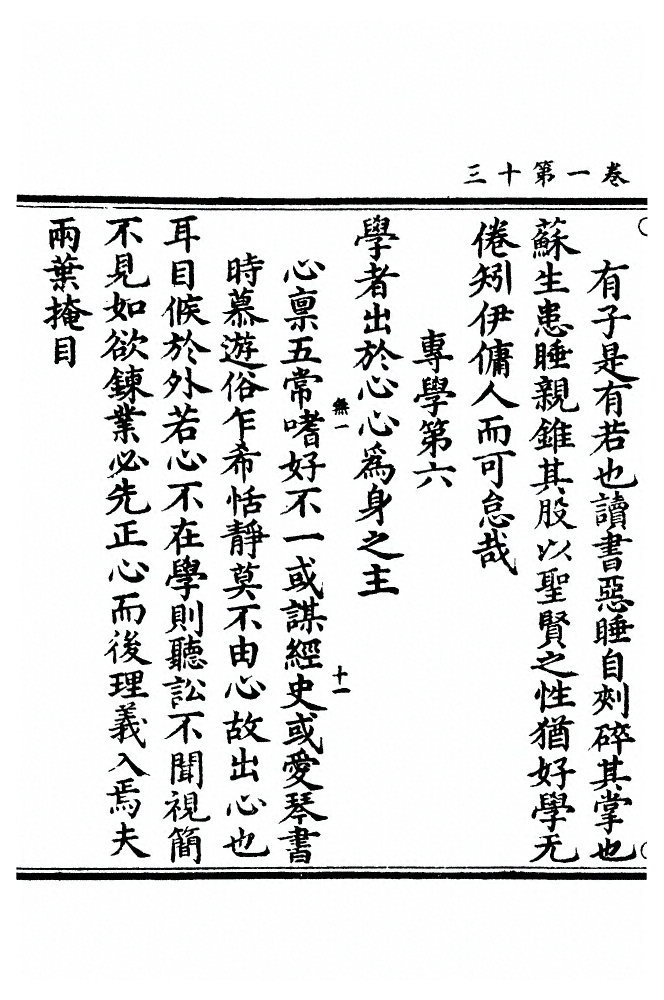 卷一第十三
有子是有若也讀書惡睡自刺碎其掌也
蘇生患睡親錐其股以聖賢之性猶好學无
倦矧伊傭人而可怠哉
專學第六
學者出於心心爲身之主
無一
十一
心禀五常嗜好不一或謀經史或愛琴書
時慕遊俗乍希恬靜莫不由心故出心也
耳目候於外若心不在學則聽訟不聞視簡
不見如欲鍊業必先正心而後理義入焉夫
兩葉掩目